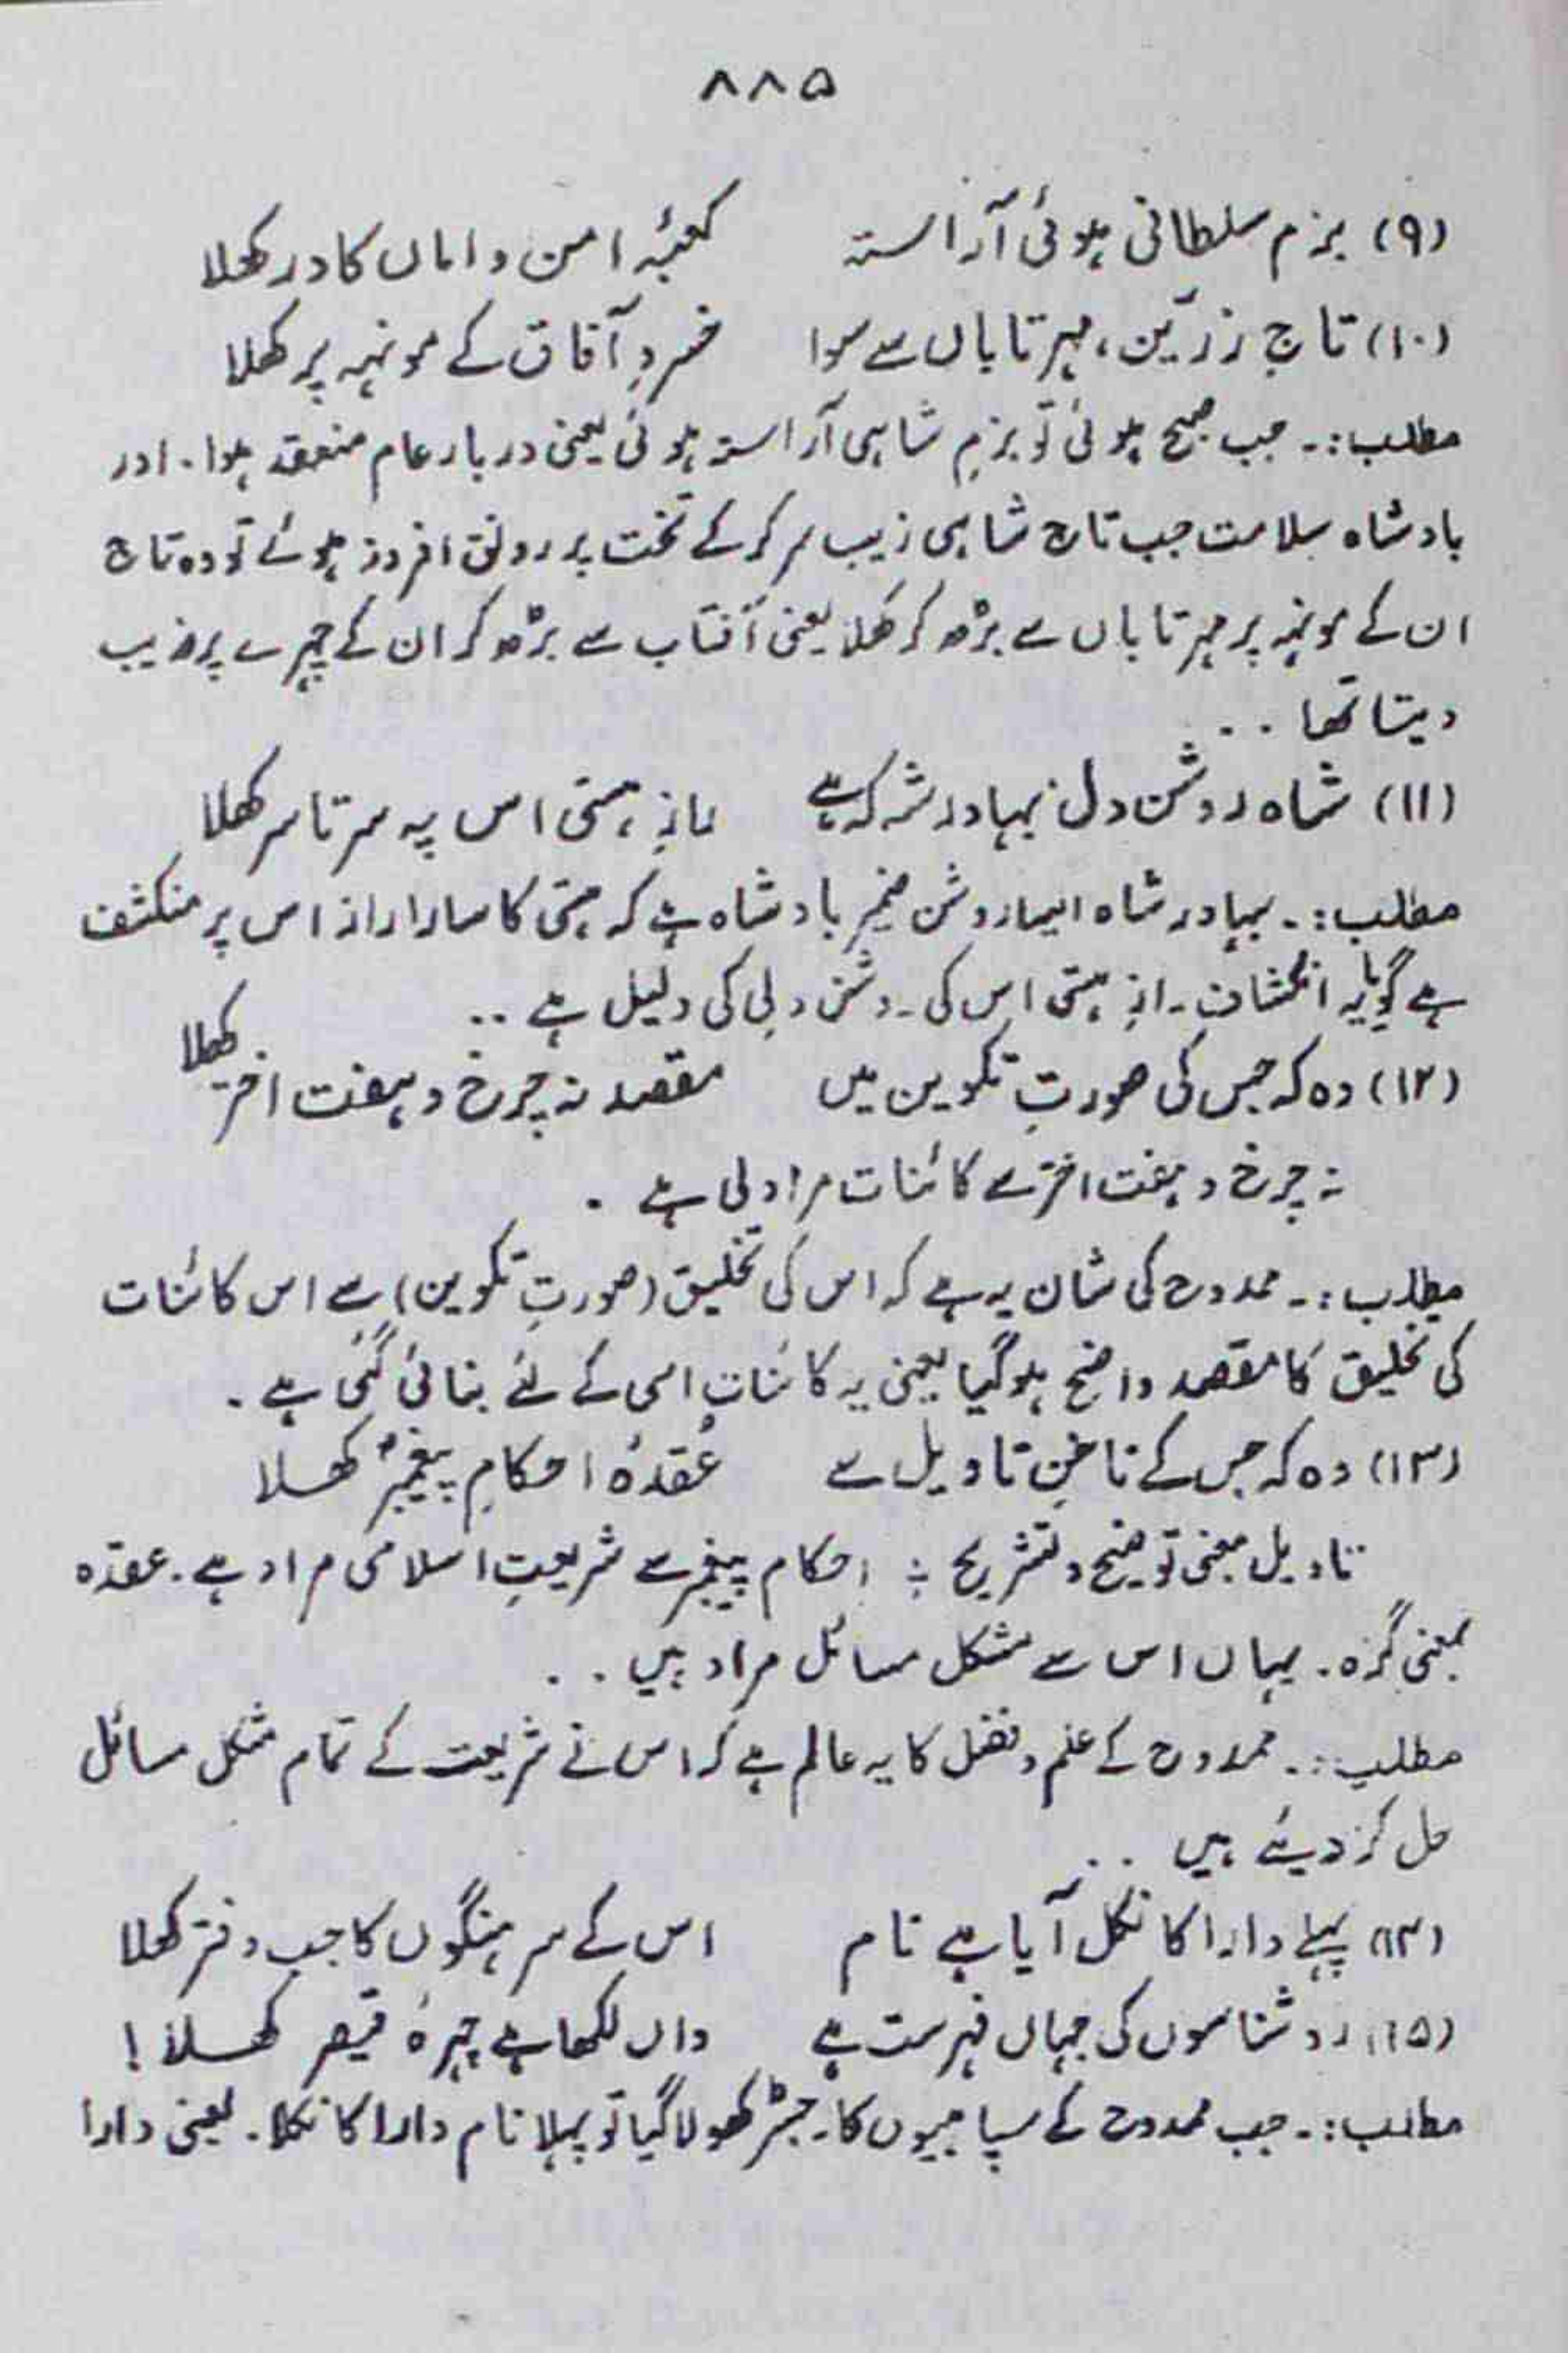 ۸۸۵
(۹) بزم سلطانی ہوئی آراستہ کعبۂ امن و اماں کا در کھلا
(۱۰) تاج زرّین، مہر تاباں سے سوا خسروِ آفاق کے مونہہ پر کھلا
مطلب:۔ جب صبح ہوئی تو بزمِ شاہی آراستہ ہوئی یعنی دربار عام منعقد ہوا۔ اور
بادشاہ سلامت جب تاج شاہی زیب سر کر کے تخت پر رونق افروز ہوئے تو وہ تاج
ان کے مونہہ پر مہر تاباں سے بڑھ کر کھلا یعنی آفتاب سے بڑھ کر ان کے چہرے پر زیب
دیتا تھا ۰۰
(۱۱) شاہ روشن دل بہادر شہ کہ ہے رازِ ہستی اس پہ سر تا سر کھلا
مطلب:۔ بہادر شاہ ایسا روشن ضمیر بادشاہ ہے کہ ہستی کا سارا راز اس پر منکشف
ہے گویا یہ انکشافِ رازِ ہستی اس کی روشن دلی کی دلیل ہے ۰۰
(۱۲) وہ کہ جس کی صورتِ تکوین میں مقصد نہ چرخ و ہفت اختر کھلا
نہ چرخ و ہفت اختر سے کائنات مراد لی ہے ۔
مطلب:۔ ممدوح کی شان یہ ہے کہ اس کی تخلیق (صورتِ تکوین) سے اس کائنات
کی تخلیق کا مقصد واضح ہو گیا یعنی یہ کائنات اسی کے لئے بنائی گئی ہے ۔
(۱۳) وہ کہ جس کے ناخنِ تاویل سے عُقدۂ احکامِ پیغمبرؐ کھلا
تاویل بمعنی توضیح و تشریح ؛ احکام پیغمبر سے شریعتِ اسلامی مراد ہے۔ عقدہ
بمعنی گرہ۔ یہاں اس سے مشکل مسائل مراد ہیں ۰۰
مطلب:۔ ممدوح کے علم و فضل کا یہ عالم ہے کہ اس نے شریعت کے تمام مشکل مسائل
حل کر دیئے ہیں ۰۰
(۱۴) پہلے دارا کا نکل آیا ہے نام اس کے سرہنگوں کا جب دفتر کھلا
(۱۵) روشناسوں کی جہاں فہرست ہے واں لکھا ہے چہرۂ قیصر کھلا!
مطلب:۔ جب ممدوح کے سپاہیوں کا رجسٹر کھولا گیا تو پہلا نام دارا کا نکلا۔ یعنی دارا